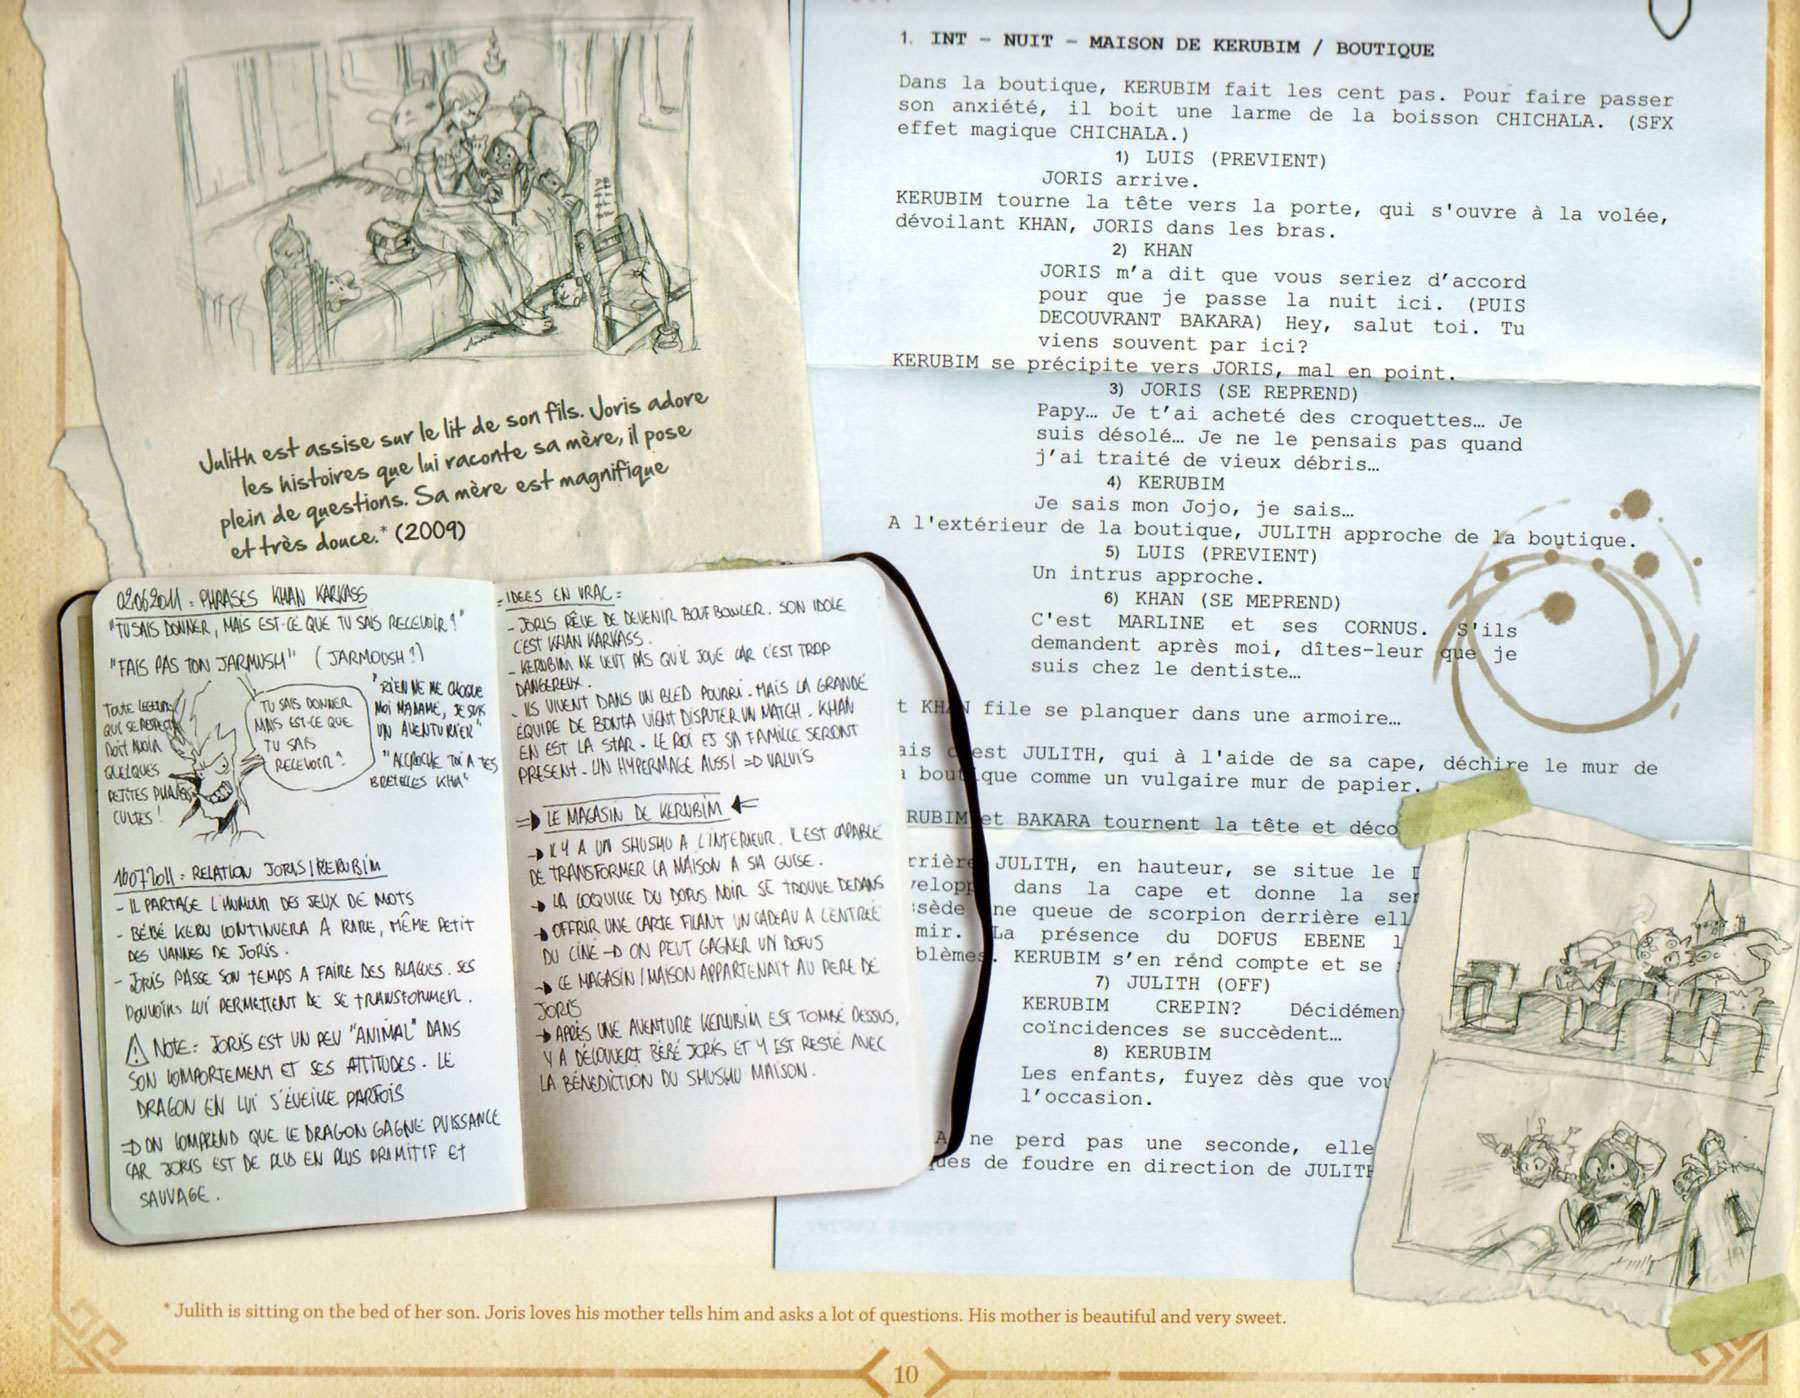 1. INT – NUIT – MAISON DE KERUBIM / BOUTIQUE
Dans la boutique, KERUBIM fait les cent pas. Pour faire passer
son anxiété, il boit une larme de la boisson CHICHALA. (SFX
effet magique CHICHALA.)
1) LUIS (PREVIENT)
JORIS arrive.
KERUBIM tourne la tête vers la porte, qui s'ouvre à la volée,
dévoilant KHAN, JORIS dans les bras.
2) KHAN
JORIS m'a dit que vous seriez d'accord
pour que je passe la nuit ici. (PUIS
DECOUVRANT BAKARA) Hey, salut toi. Tu
viens souvent par ici?
KERUBIM se précipite vers JORIS, mal en point.
3) JORIS (SE REPREND)
Papy… Je t'ai acheté des croquettes… Je
suis désolé… Je ne le pensais pas quand
j'ai traité de vieux débris…
4) KERUBIM
Je sais mon Jojo, je sais…
A l'extérieur de la boutique, JULITH approche de la boutique.
5) LUIS (PREVIENT)
Un intrus approche.
6) KHAN (SE MEPREND)
C'est MARLINE et ses CORNUS. S'ils
demandent après moi, dîtes-leur que je
suis chez le dentiste…
t KHAN file se planquer dans une armoire…
ais c'est JULITH, qui à l'aide de sa cape, déchire le mur de
a boutique comme un vulgaire mur de papier.
RUBIM et BAKARA tournent la tête et déco
rrière JULITH, en hauteur, se situe le
velopp dans la cape et donne la se
ssède une queue de scorpion derrière ell
mir. La présence du DOFUS EBENE l
blèmes. KERUBIM s'en rend compte et se
7) JULITH (OFF)
KERUBIM CREPIN? Décidémen
coïncidences se succèdent…
8) KERUBIM
Les enfants, fuyez dès que vou
l'occasion.
A ne perd pas une seconde, elle
ques de foudre en direction de JULITH
Julith est assise sur le lit de son fils. Joris adore
les histoires que lui raconte sa mère, il pose
plein de questions. Sa mère est magnifique
et très douce.* (2009)
02.06.2011 : PHRASES KHAN KARKASS
"TU SAIS DONNER, MAIS EST-CE QUE TU SAIS RECEVOIR ?"
"FAIS PAS TON JARMUSH" (JARMOUSH ?)
TOUTE LEGENDE
QUI SE RESPECTE
DOIT AVOIR
QUELQUES
PETITES PHRASES
CULTES !
TU SAIS DONNER
MAIS EST-CE QUE
TU SAIS
RECEVOIR ?
"RIEN NE ME CHOQUE
MOI MADAME, JE SUIS
UN AVENTURIER"
"ACCROCHE TOI A TES
BRETELLES KHA"
16072011 : RELATION JORIS/KERUBIM
- IL PARTAGE L'HUMOUR DES JEUX DE MOTS
- BÉBÉ KERU CONTINUERA A RIRE, MÊME PETIT
DES VANNES DE JORIS.
- JORIS PASSE SON TEMPS A FAIRE DES BLAGUES. SES
POUVOIRS LUI PERMETTENT DE SE TRANSFORMER.
NOTE : JORIS EST UN PEU "ANIMAL" DANS
SON COMPORTEMENT ET SES ATTITUDES. LE
DRAGON EN LUI S'ÉVEILLE PARFOIS
⇒ ON COMPREND QUE LE DRAGON GAGNE PUISSANCE
CAR JORIS EST DE PLUS EN PLUS PRIMITIF ET
SAUVAGE.
= IDEES EN VRAC =
- JORIS RÊVE DE DEVENIR BOUFBOWLER. SON IDOLE
C'EST KHAN KARKASS.
- KERUBIM NE VEUT PAS QU'IL JOUE CAR C'EST TROP
DANGEREUX.
- ILS VIVENT DANS UN BLED POURRI. MAIS LA GRANDE
ÉQUIPE DE BONTA VIENT DISPUTER UN MATCH. KHAN
EN EST LA STAR. LE ROI ET SA FAMILLE SERONT
PRESENT. UN HYPERMAGE AUSSI ⇒ VALUIS
⇒ LE MAGASIN DE KERUBIM ←
→ IL Y A UN SHUSHU A L'INTERIEUR. IL EST CAPABLE
DE TRANSFORMER LA MAISON A SA GUISE.
→ LA COQUILLE DU DOFUS NOIR SE TROUVE DEDANS
→ OFFRIR UNE CARTE FILANT UN CADEAU A L'ENTRÉE
DU CINÉ → ON PEUT GAGNER UN DOFUS
→ CE MAGASIN/MAISON APPARTENAIT AU PERE DE
JORIS
→ APRÈS UNE AVENTURE KERUBIM EST TOMBÉ DESSUS,
Y A DÉCOUVERT BÉBÉ JORIS ET Y EST RESTÉ AVEC
LA BÉNEDICTION DU SHUSHU MAISON.
* Julith is sitting on the bed of her son. Joris loves his mother tells him and asks a lot of questions. His mother is beautiful and very sweet.
10